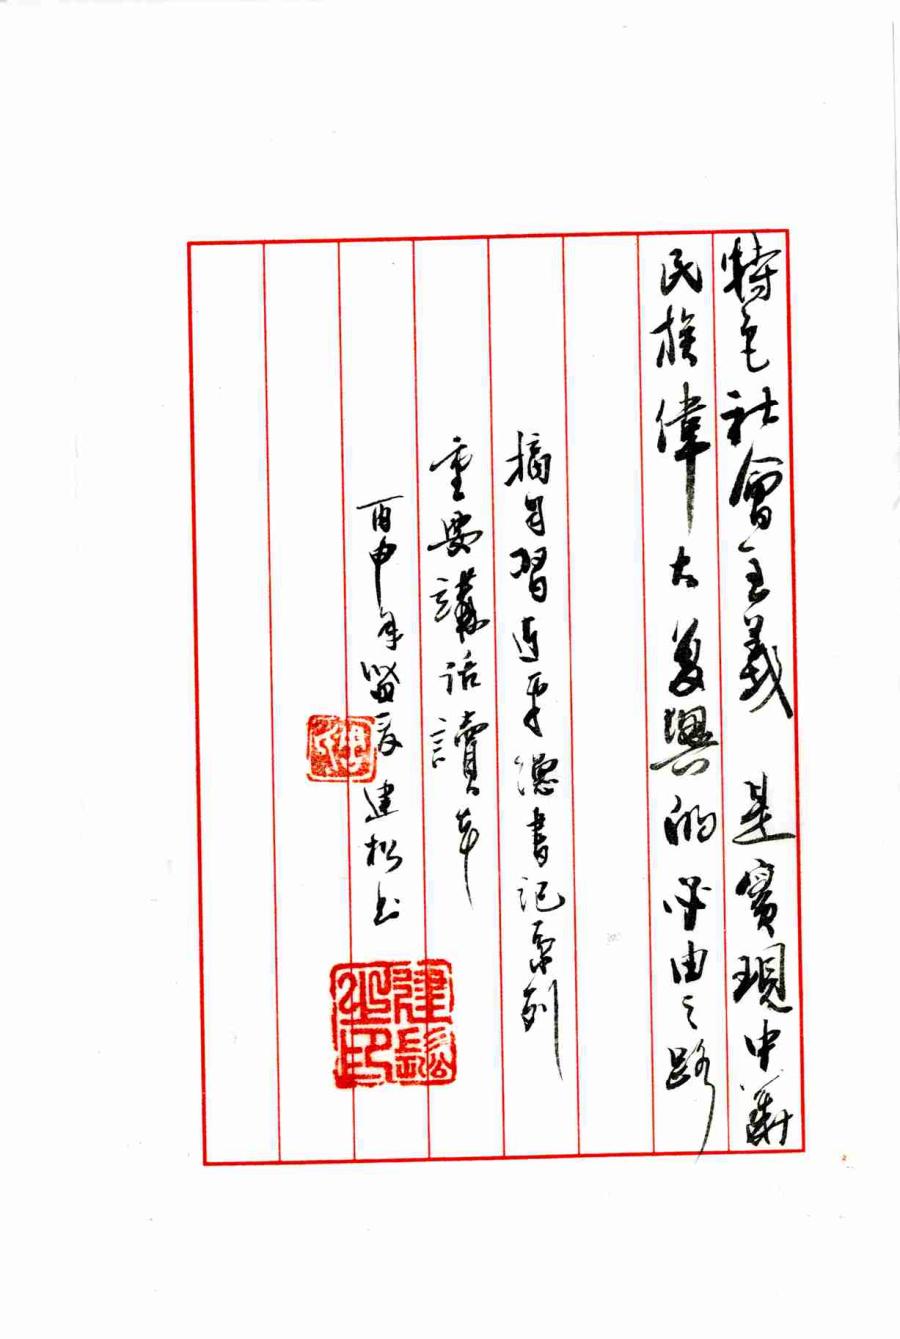 特色社會主義是實現中華
民族偉大复興的必由之路
摘自習近平總書記系列
重要講話讀本
丙申年 建松书
建松之印